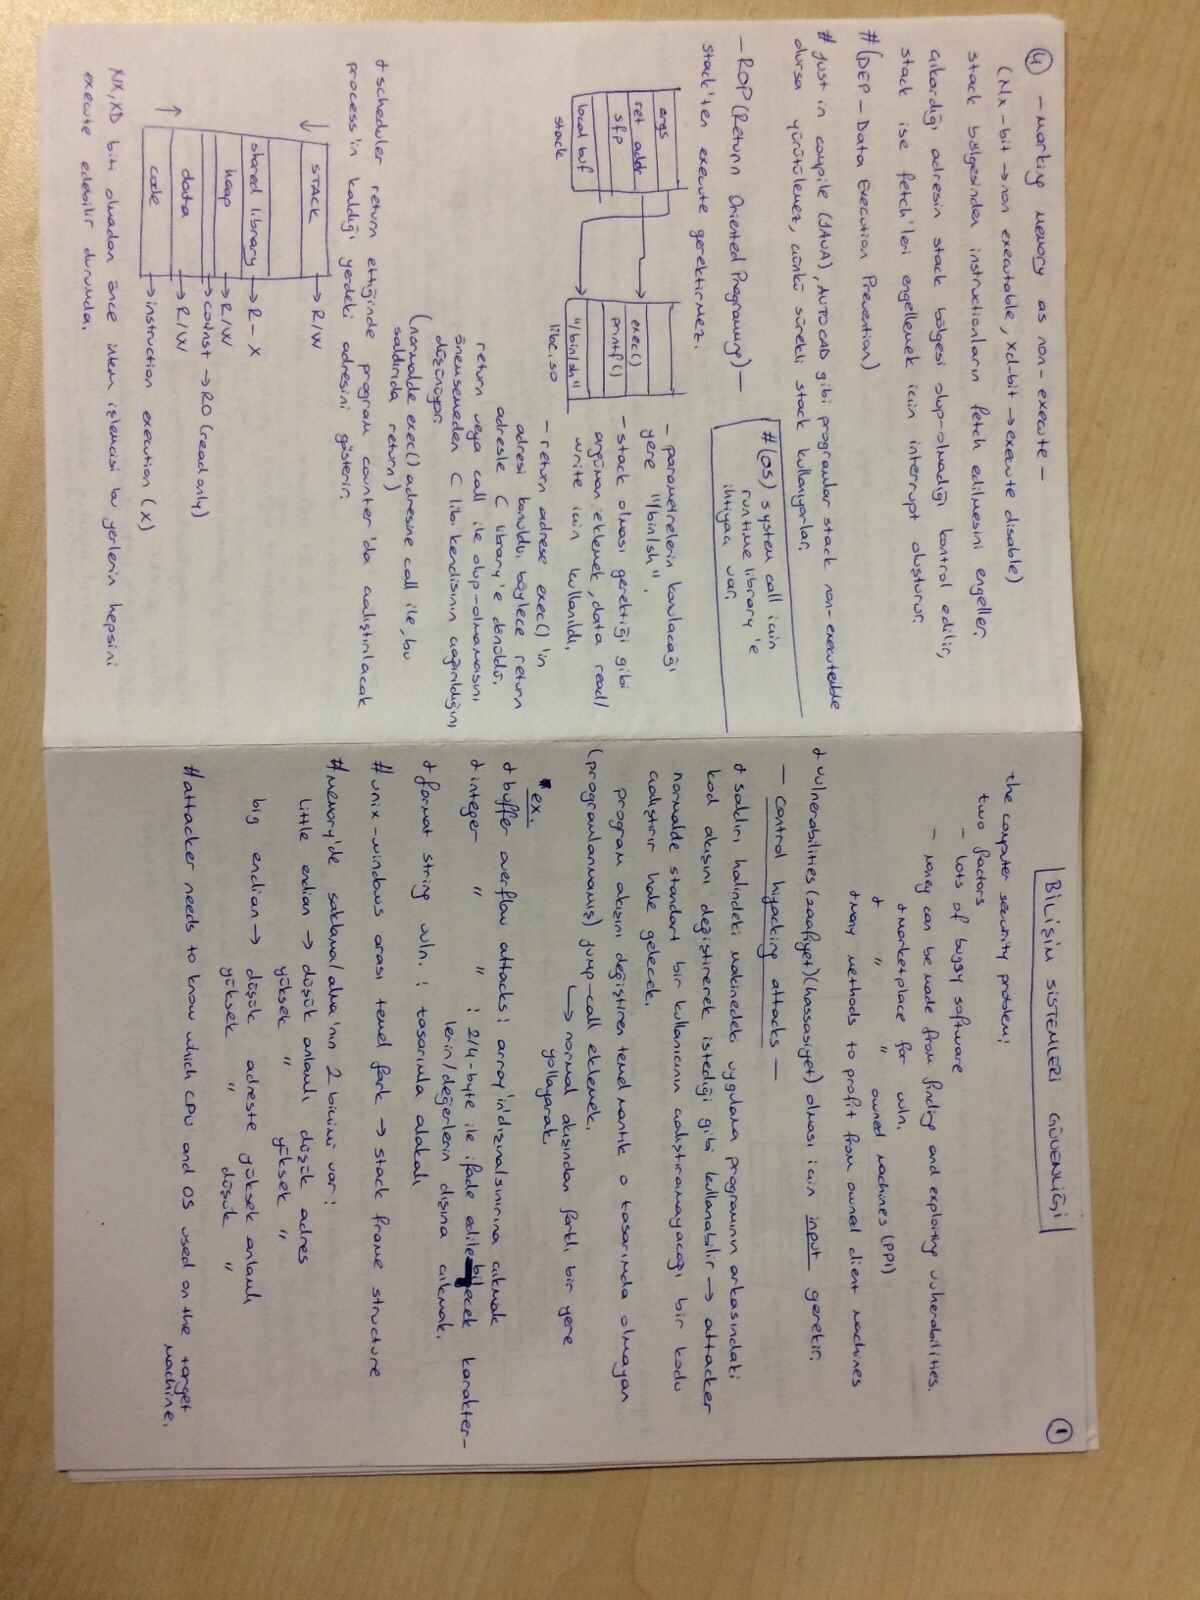 ④ -marking memory as non-execute-
(Nx-bit → non executable, xd-bit → execute disable)
stack bölgesinden instructionların fetch edilmesini engeller,
çıkardığı adresin stack bölgesi olup-olmadığı kontrol edilir,
stack ise fetch'leri engellemek için interrupt oluşturur.
#(DEP - Data Execution Prevention)
# just in compile (JAVA), AUTOCAD gibi programlar stack non-executable
olursa yürütülemez, çünkü sürekli stack kullanıyorlar.
#(OS) system call için
runtime library'e
ihtiyacı var.
-ROP (Return Oriented Programming)-
stack'ten execute gerektirmez.
args
ret addr
sfp
local buf
stack
exec()
printf()
"/bin/sh"
libc.so
- parametrelerin konulacağı
yere "/bin/sh".
- stack olması gerektiği gibi
argüman eklemek, data read/
write için kullanıldı.
- return adrese exec()'in
adresi konuldu, böylece return
adresle C library'e dönüldü.
return veya call ile olup-olmamasını
önemsemeden C libi kendisinin çağırıldığını
düşünüyor.
(normalde exec() adresine call ile, bu
saldırıda return)
+ scheduler return ettiğinde program counter'da çalıştırılacak
process'in kaldığı yerdeki adresini gösterir.
STACK → R/W
shared library → R-X
heap → R/W
→ const → RO (read only)
data → R/W
code → instruction execution (X)
NX, XD biti olmadan önce intem işlemcisi bu yerlerin hepsini
execute edebilir durumda.
①
BİLİŞİM SİSTEMLERİ GÜVENLİĞİ
the computer security problem:
two factors
- lots of buggy software
- money can be made from finding and exploiting vulnerabilities.
+ marketplace for vuln.
+ " " owned machines (PPI)
+ many methods to profit from owned client machines
+ vulnerabilities (zaafiyet) (hassasiyet) olması için input gerekir.
- control hijacking attacks -
+ saldırı halindeki makinedeki uygulama programının arkasındaki
kod akışını değiştirerek istediği gibi kullanabilir → attacker
normalde standart bir kullanıcının çalıştıramayacağı bir kodu
çalıştırır hale gelecek.
program akışını değiştiren temel mantık o tasarımda olmayan
(programlanmamış) jump-call eklemek.
→ normal akışından farklı bir yere
yollayarak.
ex.
+ buffer overflow attacks: array'in dışına/sınırına çıkmak
+ integer " " : 2/4-byte ile ifade edilebilecek karakter-
lerin/değerlerin dışına çıkmak.
+ format string vuln. : tasarımla alakalı
# unix-windows arası temel fark → stack frame structure
# memory'de saklama/alma'nın 2 biçimi var:
little endian → düşük anlamlı düşük adres
yüksek " yüksek "
big endian → düşük adreste yüksek anlamlı
yüksek " düşük "
# attacker needs to know which CPU and OS used on the target
machine.